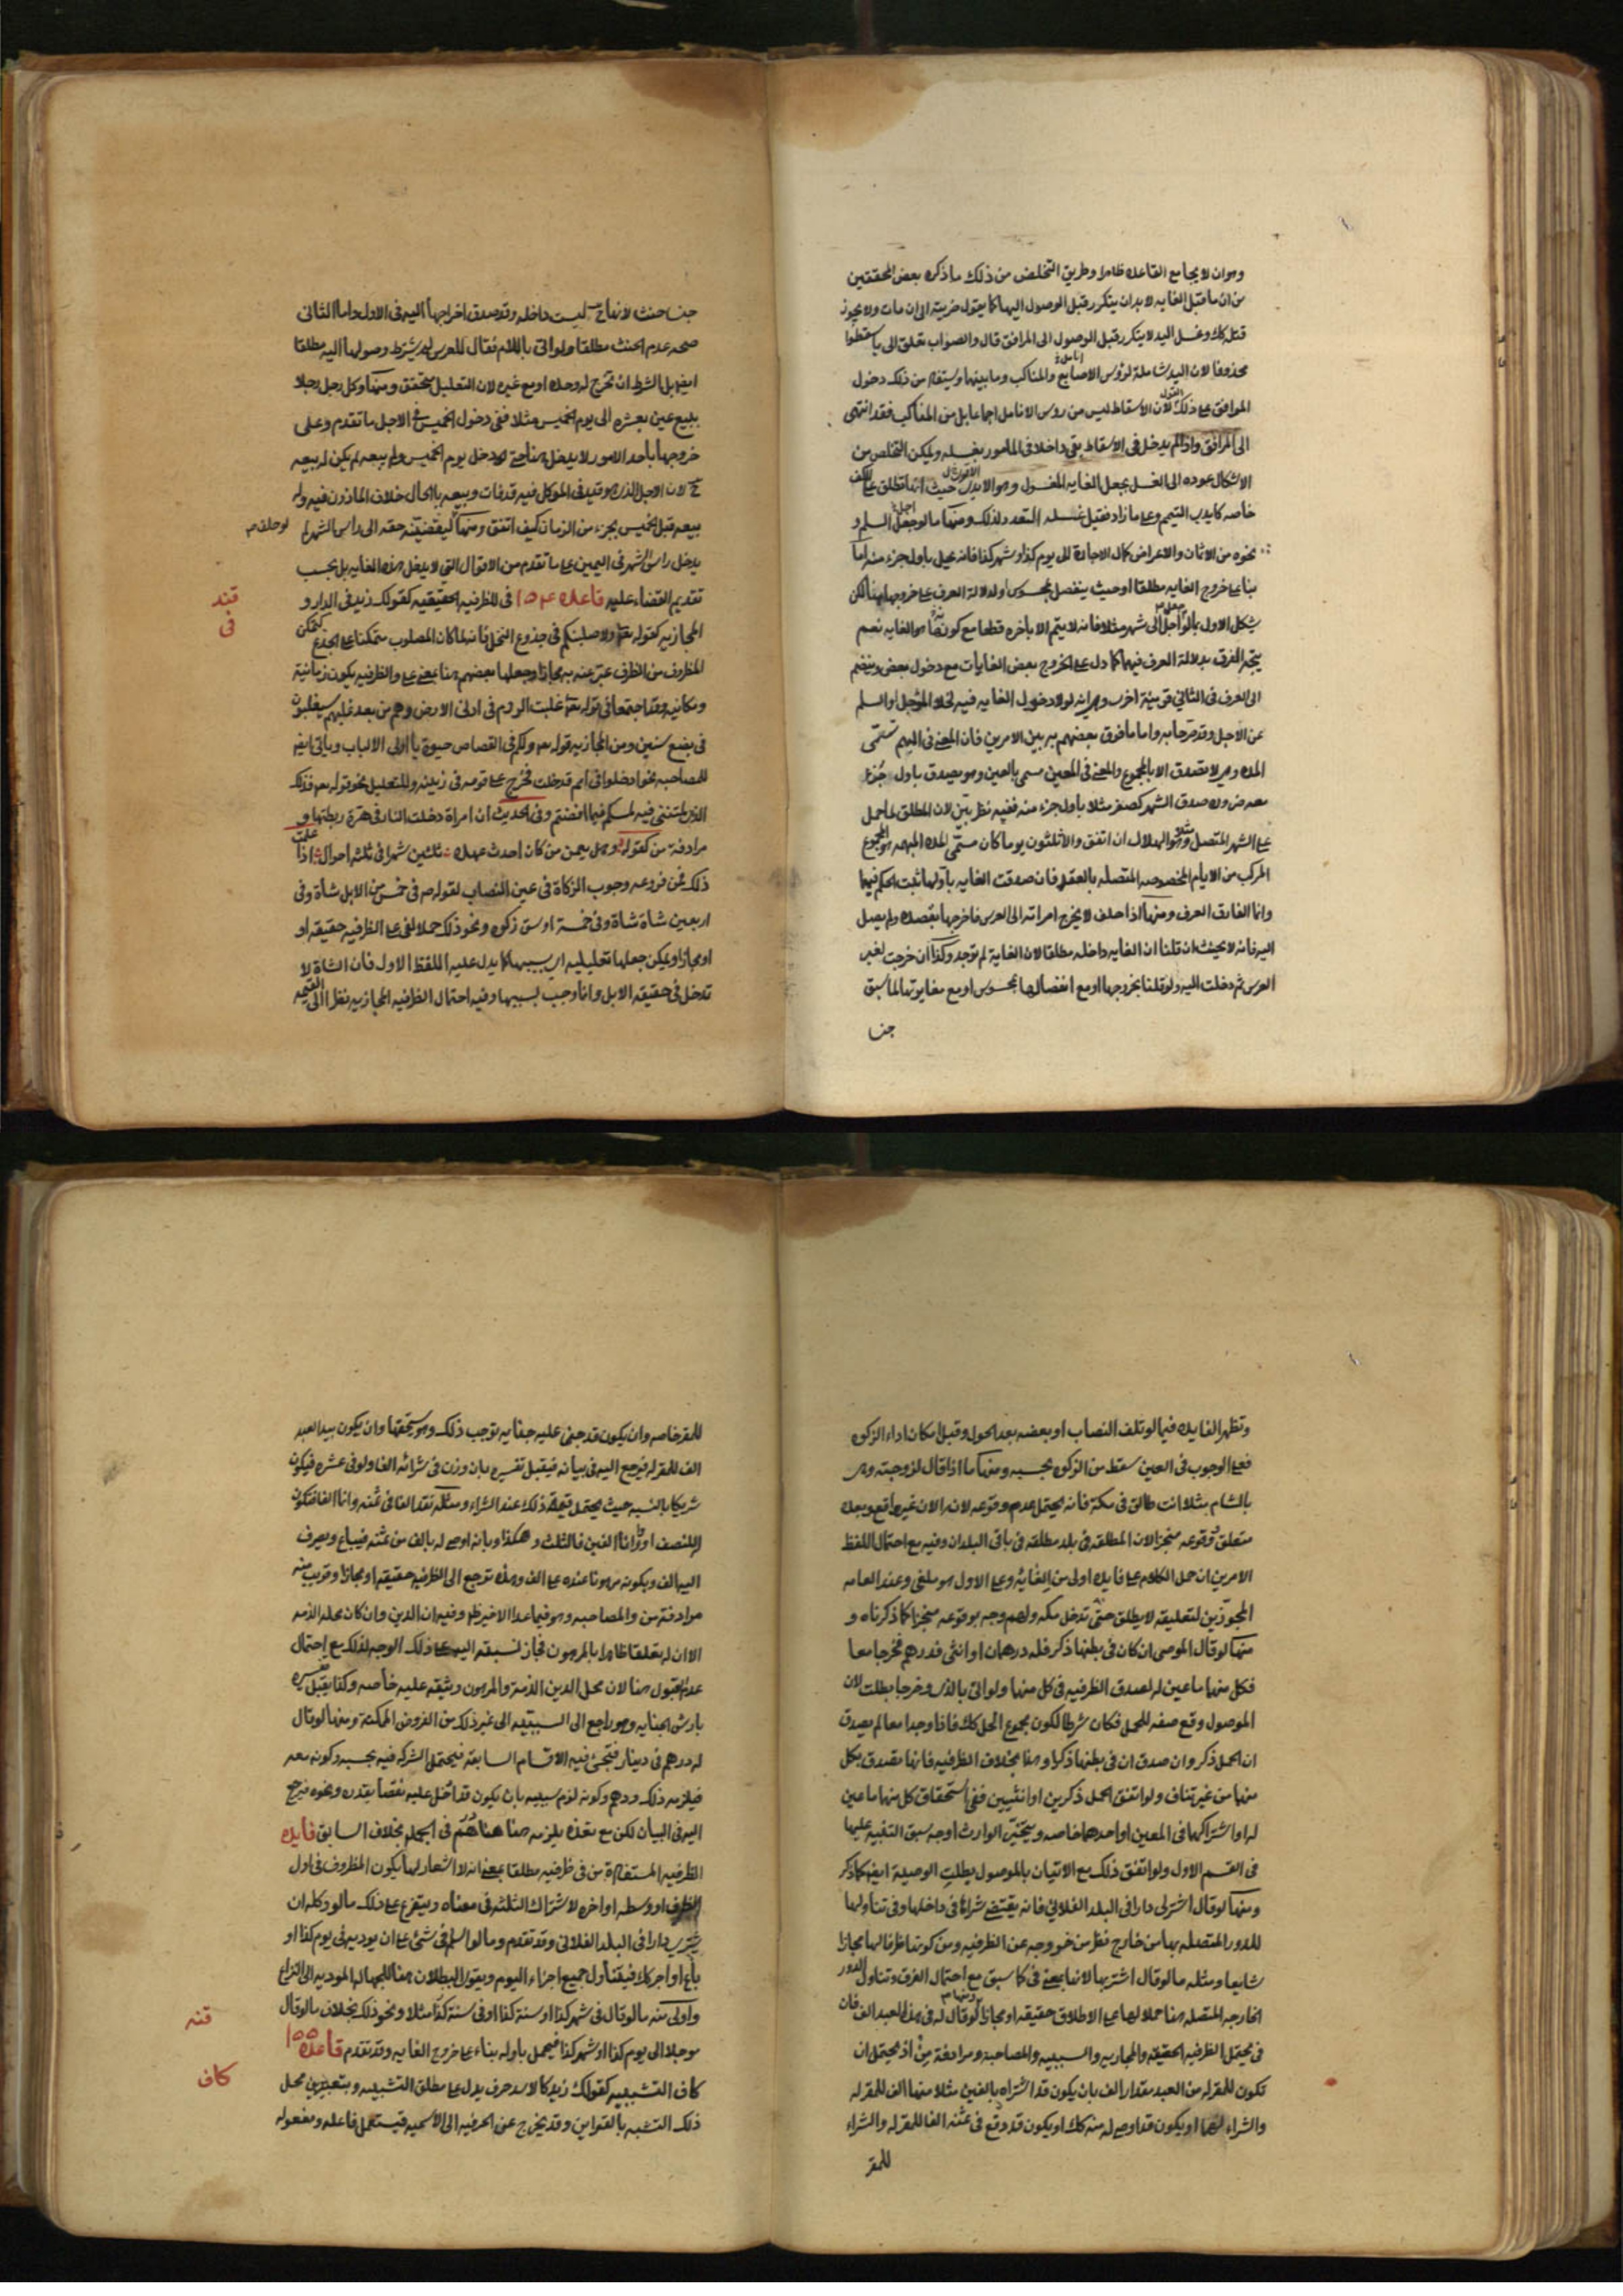 وهو ان لا يجامع القاعده ظاهرا وطريق التخلص من ذلك ما ذكره بعض المحققين
من ان ما قبل الغايه لا بد ان يتكرر قبل الوصول اليها كما يقول ضربته الى ان مات ولا يجوز
قتلته كك وغسل اليد لا يتكرر قبل الوصول الى المرافق قال والصواب تعلق الى باسقطوا
محذوفا لان اليد شاملة لرؤس الاصابع والمناكب وما بينهما ويستفاد من ذلك دخول
المرافق على ذلك لان الاسقاط ليس من رؤس الانامل اجماعا بل من المناكب فقد انتهى
الى المرافق واذا لم يدخل في الاسقاط بقى داخلا في المامور بغسله ويمكن التخلص من
الاشكال عوده الى الغسل بجعل الغايه للمغسول وهو الايدى حيث انها تطلق على الكف
خاصه كايدى التيمم وعلى ما زاد فقيل غسله المتعدد لذلك ومنها ما لو جعل السلم و
نحوه من الاثمان والاعراض كمال الاجارة الى يوم كذا او شهر كذا فانه يحل باول جزء منه اما
بناء على خروج الغايه مطلقا او حيث ينفصل بمحسوس او لدلالة العرف على خروجها هنا لكن
يشكل الاول بما لو اجل الى شهر مثلا فانه لا يتم الا باخره قطعا مع كونه ايضا هو الغايه نعم
يتجه الفرق بدلالة العرف فيهما كما دل على الخروج بعض الغايات مع دخول بعض وينضم
الى العرف في الثاني قرينة اخرى وهو انه لولا دخول الغايه فيه لخلا المؤجل او السلم
عن الاجل وقد صرحا به واما ما فرق بعضهم به بين الامرين فان المعنى في المبهم تسمى
المده وهو لا تصدق الا بالمجموع والمعنى في المعين مسمى بالعين وهو يصدق باول جزء
بعد ضروره صدق الشهر كصفر مثلا باول جزء منه ففيه نظر بين لان المطلق لما حمل
على الشهر المتصل وهو الهلال ان اتفق والا ثلثون يوما كان مسمى المده المبهمه هو المجموع
المركب من الايام المخصوصه المتصله بالعقد فان صدقت الغايه باولها ثبت الحكم فيهما
وانما الفارق العرف ومنها اذا حلف لا يخرج امراته الى العرس فاخرجها بقصده ولم يصل
اليه فانه لا يحنث ان قلنا ان الغايه داخله مطلقا لان الغاية لم توجد وكذا ان خرجت لغير
العرس ثم دخلت اليه ولو قلنا بخروجها او مع انفصالها بمحسوس او مع مغايرتها لما سبق
جنسا
جنسا حنث لانها ح ليست داخله وقد صدق اخراجها اليه في الاول واما الثاني
صحه عدم الحنث مطلقا ولو اتى باللام فقال للعرس لم يشترط وصولها اليه مطلقا
ايضا بل الشرط ان تخرج له وحده او مع غيره لان التعليل متحقق ومنها وكل رجل رجلا
ببيع عين بعشره الى يوم الخميس مثلا ففي دخول الخميس في الاجل ما تقدم وعلى
خروجها باحد الامور لا يدخل هنا حتى لو دخل يوم الخميس ولم يبعه لم يكن له بيعه
ح لان الاجل الذى هو قيد في الموكل فيه قد فات وبيعه بالحال خلاف الماذون فيه وله
بيعه قبل الخميس بجزء من الزمان كيف اتفق ومنها ليقضينه حقه الى راس الشهر لم
لو حلف
يدخل راس الشهر في اليمين على ما تقدم من الاقوال التي لا يدخل هذه الغايه بل يجب
تقديم القضاء عليه قاعده ١٥٤ في للظرفيه الحقيقيه كقولك زيد في الدار و
قند
في
المجازيه كقوله تعالى ولاصلبنكم في جذوع النخل فانه لما كان المصلوب متمكنا على الجذع كتمكن
المظروف من الظرف عبر عنه به مجازا وجعلها بعضهم هنا بمعنى على والظرفيه يكون زمانية
ومكانيه وقد اجتمعا في قوله تعالى غلبت الروم في ادنى الارض وهم من بعد غلبهم سيغلبون
في بضع سنين ومن المجازيه قوله تعالى ولكم في القصاص حيوة يا اولى الالباب وياتي ايضا
للمصاحبه نحو ادخلوا في امم قد خلت فخرج على قومه في زينته وللتعليل نحو قوله تعالى فذلكن
الذى لمتننى فيه لمسكم فيما افضتم وفي الحديث ان امراة دخلت النار في هرة ربطتها و
مرادفة من كقوله وهل يعمن من كان احدث عهده ثلثين شهرا في ثلثه احوال اذا علمت
ذلك فمن فروعه وجوب الزكاة في عين النصاب لقوله ص في خمس من الابل شاة وفي
اربعين شاة شاة وفي خمسة اوسق زكوه ونحو ذلك حملا لفى على الظرفيه حقيقه او
او مجازا ويمكن جعلها تعليليه اى بسببها كما يدل عليه اللفظ الاول فان الشاة لا
تدخل في حقيقه الابل وانما وجب بسببها وفيه احتمال الظرفيه المجازيه نظرا الى القيمه
وتظهر الفايده فيما لو تلف النصاب او بعضه بعد الحول وقبل امكان اداء الزكوه
فعلى الوجوب في العين سقط من الزكوه بحسبه ومنها ما اذا قال لزوجته وهى
بالشام مثلا انت طالق في مكة فانه يحتمل عدم وقوعه لانه الان غير واقع ويعد
متعلق وقوعه منجزا لان المطلقه في بلد مطلقه في باقى البلدان وفيه مع احتمال اللفظ
الامرين ان حمل الكلام على فايده اولى من الغائه وعلى الاول هو ملغى وعند العامه
المجوزين لتعليقه لا يطلق حتى تدخل مكه ولهم وجه بوقوعه منجزا كما ذكرناه و
منها لو قال الموصى ان كان في بطنها ذكر فله درهمان او انثى فدرهم فخرجا معا
فكل منهما ما عين له لصدق الظرفيه في كل منهما ولو اتى بالذى وخرجا بطلت لان
الموصول وقع صفه للحمل فكان شرطا لكون مجموع الحمل كك فاذا وجدا معا لم يصدق
ان الحمل ذكر وان صدق ان في بطنها ذكرا وهذا بخلاف الظرفيه فانها تصدق بكل
منهما من غير تناف ولو اتفق الحمل ذكرين او انثيين ففي استحقاق كل منهما ما عين
له او اشتراكهما في المعين او احدهما خاصه ويتخير الوارث اوجه سبق التنبيه عليها
في القسم الاول ولو اتفق ذلك مع الاتيان بالموصول بطلت الوصية ايضا كما ذكر
ومنها لو قال اشتر لى دارا في البلد الفلاني فانه يقتضى شرائها في داخلها وفي تناولها
للدور المتصله بها من خارج نظر من خروجه عن الظرفيه ومن كونها ظرفا لها مجازا
شايعا ومثله ما لو قال اشتر بها لانها بمعنى في كما سبق مع احتمال الفرق وتناول الدور
الخارجه المتصله هنا حملا لها على الاطلاق حقيقه او مجازا ومنها لو قال له في هذا العبد الف فان
في يحتمل الظرفيه الحقيقيه والمجازيه والسببيه والمصاحبة ومرادفة من اذ يحتمل ان
تكون للمقر له من العبد بمقدار الف بان يكون قد اشتراه بالفين مثلا منها الف للمقر له
والشراء لهما او يكون قد اوصى له منه كك او يكون قد دفع في ثمنه الفا للمقر له والشراء
للمقر
للمقر خاصه وان يكون قد جنى عليه جنايه توجب ذلك وهو يستحقها وان يكون بيد العبد
الف للمقر له فيرجع اليه في بيانه فيقبل تفسيره بان وزن في شرائه الفا ولو في عشره فيكون
شريكا بالنسبه حيث يحتمل قيمته ذلك عند الشراء ومثله نقد الفا في ثمنه وانا الفا فتكون
له النصف او وانا الفين فالثلث وهكذا وبانه اوصى له بالف من ثمنه فيباع ويصرف
اليه الف وبكونه مرهونا عنده على الف وهذه ترجع الى الظرفيه حقيقه او مجازا وقريب منه
مرادفة من والمصاحبه وهو فيما عدا الاخير ظاهر وفيه ان الدين وان كان محله الذمه
الا ان له تعلقا ظاهرا بالمرهون فجاز نسبته اليه على ذلك الوجه لذلك مع احتمال
عدم القبول هنا لان محل الدين الذمة والمرهون وثيقه عليه خاصه وكذا يقبل تفسيره
بارش الجنايه وهو راجع الى السببيه الى غير ذلك من الفروض الممكنة ومنها لو قال
له درهم في دينار فتجئ فيه الاقسام السابقه فيحتمل الشركه فيه بحسبه وكونه معه
فيلزمه ذلك ودرهم وكونه لزم بسببه بان يكون قد ادخل عليه نقصا بقدره ونحوه فيرجع
اليه في البيان لكن مع تعذره يلزمه هنا هنا درهم في الجمله بخلاف السابق فايده
الظرفيه المستفادة من في ظرفيه مطلقا بمعنى انه لا اشعار لها بكون المظروف في اول
الظرف او وسطه او اخره لاشتراك الثلثه في معناه ويتفرع على ذلك ما لو وكله ان
يشترى دارا في البلد الفلاني وقد تقدم وما لو اسلم في شئ على ان يوديه في يوم كذا او
باع او اجر كك فيتناول جميع اجزاء اليوم ويقوى البطلان هنا للجهاله الموديه الى النزاع
واولى منه ما لو قال في شهر كذا او سنة كذا او في سنة كذا مثلا ونحو ذلك بخلاف ما لو قال
موجلا الى يوم كذا او شهر كذا فيحمل باوله بناء على خروج الغايه وقد تقدم قاعده ١٥٥
قنه
كاف التشبيه كقولك زيد كالاسد حرف يدل على مطلق التشبيه ويتعين محل
كاف
ذلك التشبه بالقراين وقد يخرج عن الحرفيه الى الاسميه فيستعمل فاعله ومفعوله